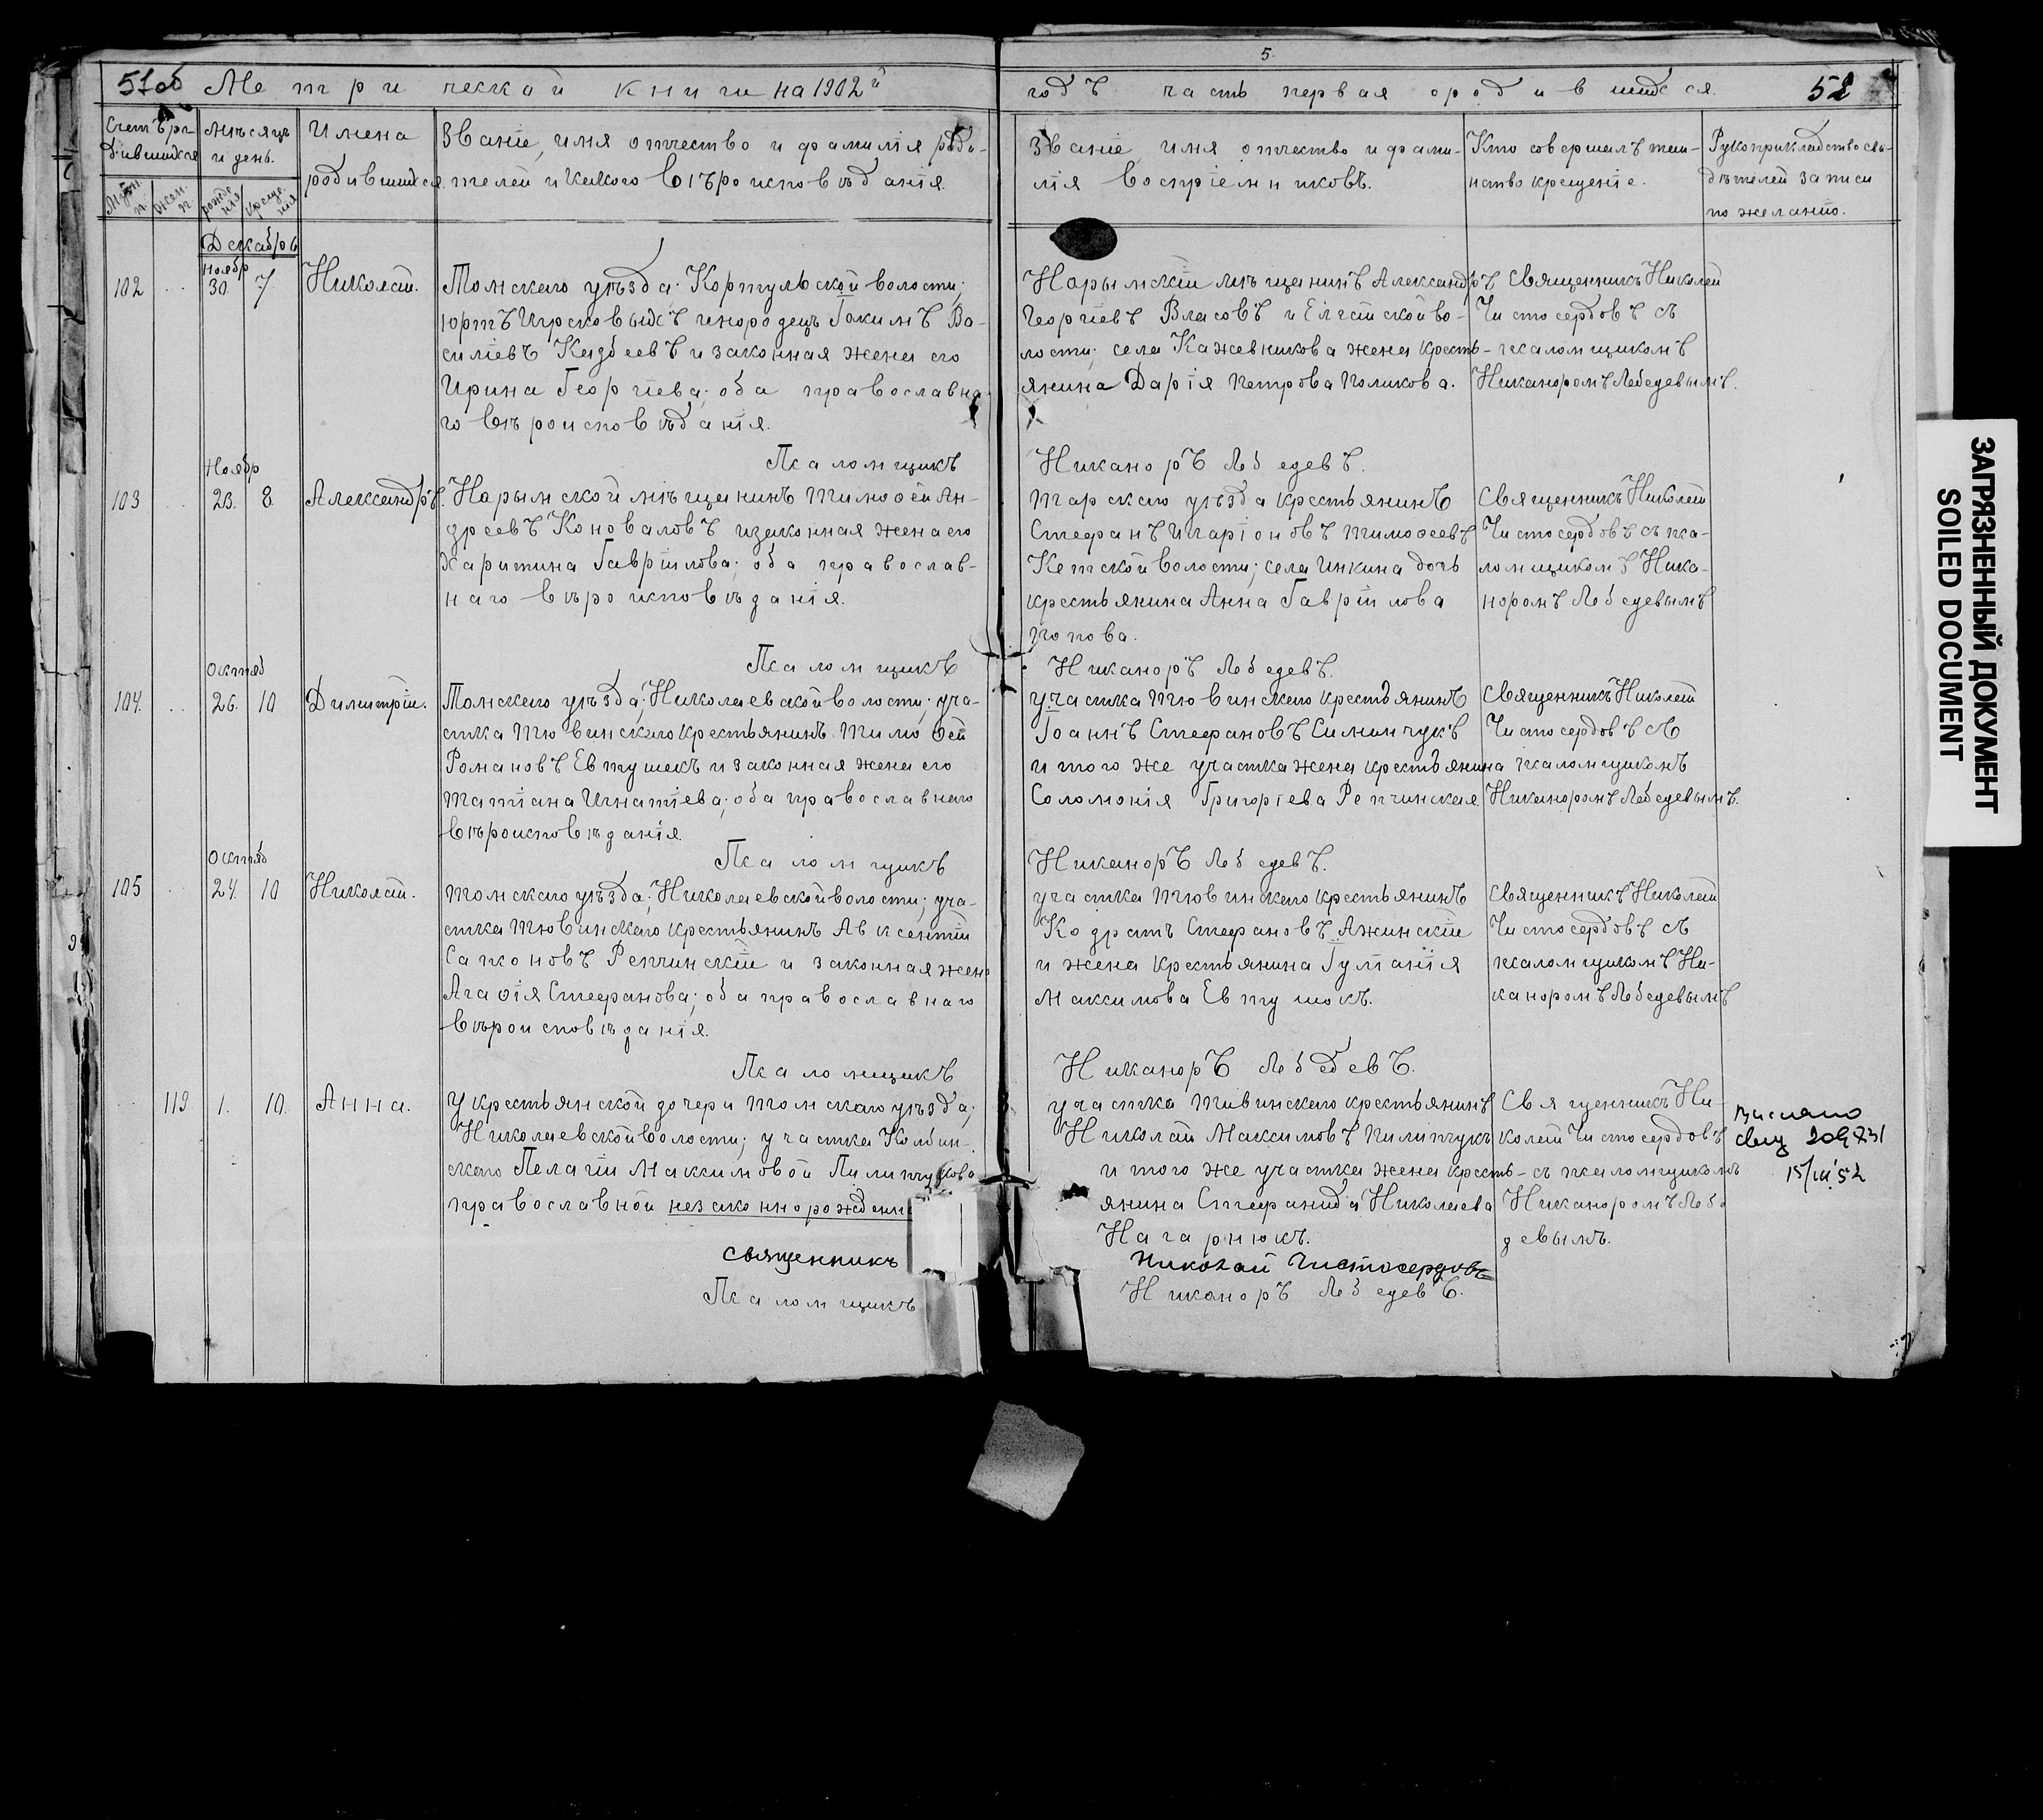 5
51об Метрической книги на 1902й
годъ часть первая о родившихся. 52
Счетъ ро-
дившихся
Муж.
п.
Жен.
п.
Мѣсяцъ
и день.
рожде
нія
креще-
нія
Имена
родившихся.
Званіе, имя отчество и фамилія роди-
телей и какого вѣроисповѣданія.
Званіе, имя отчество и фами-
лія воспріемниковъ.
Кто совершилъ таин-
ство крещенія.
Рукоприкладство сви-
дѣтелей записи
по желанію.
Декабрь
Ноябр
102 30. 7 Николай.
Томскаго уѣзда; волости;
юртъ инородецъ Іакимъ Ва-
силіевъ Казбеевъ и законная жена его
Ирина Георгіева; оба православна
го вѣроисповѣданія.
Нарымскій мѣщанинъ Александръ
Георгіевъ Власовъ и Елгайской во-
лости; села Кажевникова жена кресть-
янина Дарія Петрова Поликова.
Священникъ Николай
Чистосердовъ съ
псаломщикомъ
Никаноромъ Лебедевымъ.
Псаломщикъ Никаноръ Лебедевъ.
Ноябр
103 23. 8 Александръ.
Нарымской мѣщанинъ Тимоѳей Ан-
дреевъ Коноваловъ и законная жена его
Харитина Гавріилова; оба православ-
наго вѣроисповѣданія.
Тарскаго уѣзда крестьянинъ
Стефанъ Иларіоновъ Тимоѳеевъ
Кетской волости; села Инкина дочь
крестьянина Анна Гавріилова
Попова.
Священникъ Николай
Чистосердовъ съ пса-
ломщикомъ Ника-
норомъ Лебедевымъ
Псаломщикъ Никаноръ Лебедевъ.
Октяб
104. 26. 10 Димитрій.
Томскаго уѣзда; Николаевской волости; уча-
стка Тювинскаго крестьянинъ Тимоѳей
Романовъ Евтушекъ и законная жена его
Татіана Игнатіева; оба православнаго
вѣроисповѣданія.
участка Тювинскаго крестьянинъ
Іоаннъ Стефановъ Симинчукъ
и того же участка жена крестьянина
Соломонія Григоріева Репчинская
Священникъ Николай
Чистосердовъ съ
псаломщикомъ
Никаноромъ Лебедевымъ.
Псаломщикъ Никаноръ Лебедевъ.
Октяб
105 24. 10 Николай.
Томскаго уѣзда; Николаевской волости; уча-
стка Тювинскаго крестьянинъ Авксентій
Сапоновъ Репчинскій и законная жена
Агаѳія Стефанова; оба православнаго
вѣроисповѣданія.
участка Тювинскаго крестьянинъ
Кодратъ Стефановъ Ажинскій
и жена крестьянина Іуліанія
Максимова Евтушокъ.
Священникъ Николай
Чистосердовъ съ
псаломщикомъ Ни-
каноромъ Лебедевымъ
Псаломщикъ Никаноръ Лебедевъ.
119 1. 10. Анна.
У крестьянской дочери Томскаго уѣзда;
Николаевской волости; участка Колбин-
скаго Пелагіи Максимовой Пилипчукова
православной незаконнорожденн
участка Тивинскаго крестьянинъ
Николай Максимовъ Пилипчукъ
и того же участка жена кресть-
янина Стефанида Николаева
Нагарнюкъ.
Священникъ Ни-
колай Чистосердовъ
съ псаломщикомъ
Никаноромъ Лебе
девымъ.
15/III 52
Священникъ Николай Чистосердовъ
Псаломщикъ Никаноръ Лебедевъ.
ЗАГРЯЗНЕННЫЙ ДОКУМЕНТ
SOILED DOCUMENT